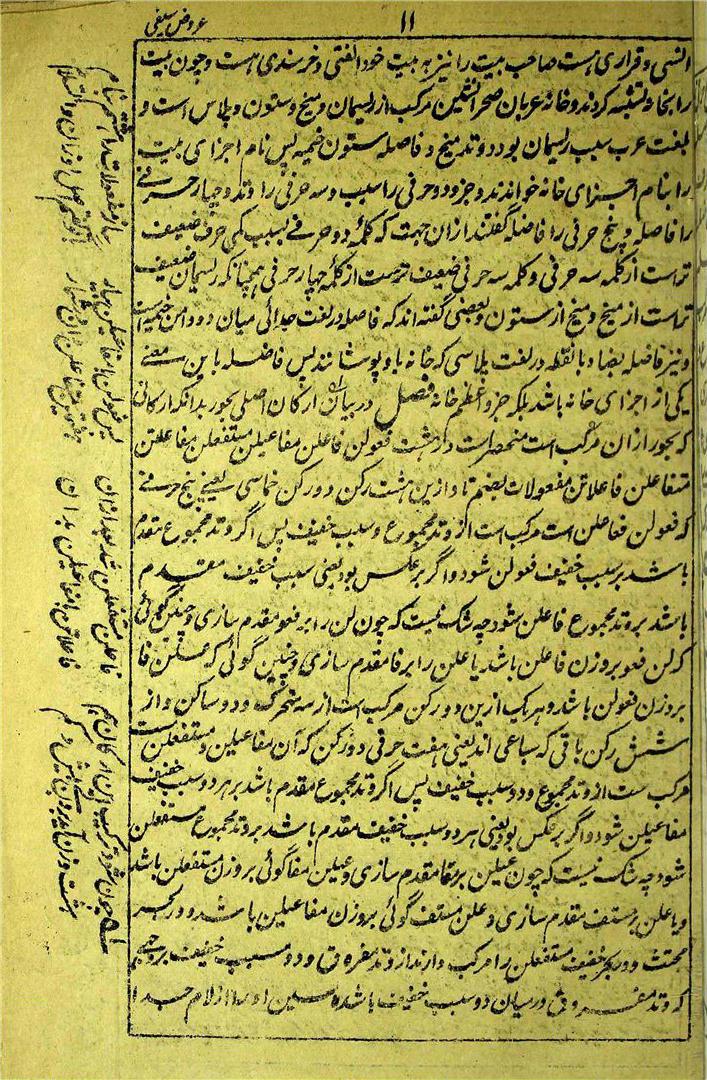 ۱۱
عروض سیفی
انسی و قراری هست صاحب بیت را نیز به بیت خود الفتی و خرسندی هست و چون بیت
را بخانه تشبیه کردند و خانهٔ عربان صحرا نشین مرکب از ریسمان و میخ و ستون و پلاس است و
بلغت عرب سبب ریسمان بود و وتد میخ و فاصله ستون خیمه پس نام اجزای بیت
را بنام اجزای خانه خواندند و جزو دو حرفی را سبب و سه حرفی را وتد و چهار حرفی
را فاصله و پنج حرفی را فاضله گفتند ازان جهت که کلمهٔ دو حرفی بسبب کمی حرف ضعیف
تر است از کلمه سه حرفی و کلمه سه حرفی ضعیف تر ست از کلمه چهار حرفی همچنانکه ریسمان ضعیف
تر است از میخ و میخ از ستون و بعضی گفته اند که فاصله در لغت جدائی میان دو دامن خیمه است
و نیز فاضله بضاد با نقطه در لغت پلاسی که خانه باو پوشانند پس فاضله باین معنی
یکی از اجزای خانه باشد بلکه جزو اعظم خانه فصل در بیان ارکان اصلی بحور بدانکه ارکانی
که بحور ازان مرکب است منحصر است در هشت فعولن فاعلن مفاعیلن مستفعلن مفاعلتن
متفاعلن فاعلاتن مفعولات بضم تا و ازین هشت رکن دو رکن خماسی یعنی پنج حرفی
که فعولن فاعلن است مرکب است از وتد مجموع و سبب خفیف پس اگر وتد مجموع مقدم
باشد بر سبب خفیف فعولن شود و اگر بر عکس بود یعنی سبب خفیف مقدم
باشد بر وتد مجموع فاعلن شود چه شک نیست که چون لن را بر فعو مقدم سازی و چنین گوئی
که لن فعو بر وزن فاعلن باشد یا علن را بر فا مقدم سازی و چنین گوئی که علن فا
بر وزن فعولن باشد و هر یک ازین دو رکن مرکب است از سه متحرک و دو ساکن و از
شش رکن باقی که سباعی اند یعنی هفت حرفی دو رکن که آن مفاعیلن و مستفعلن است
مرکب ست از وتد مجموع و دو سبب خفیف پس اگر وتد مجموع مقدم باشد بر هر دو سبب خفیف
مفاعیلن شود و اگر بر عکس بود یعنی هر دو سبب خفیف مقدم باشد بر وتد مجموع مستفعلن
شود چه شک نیست که چون عیلن بر مفا مقدم سازی و عیلن مفا گوئی بر وزن مستفعلن باشد
و یا علن بر مستف مقدم سازی و علن مستف گوئی بر وزن مفاعیلن باشد و در بحر
مجتث و در بحر خفیف مستفعلن را مرکب دارند از وتد مفروق و دو سبب خفیف بر وجهی
که وتد مفروق در میان دو سبب خفیف باشد و سین او را از لام جدا
چون شود مرکب ازین ارکان هم
هشت وزن آید برون بیش و کم
فاعلن مستفعلن شد بعد ازان
فاعلاتن با مفاعیلن بدان
پس فعولن با مفاعیلن بیار